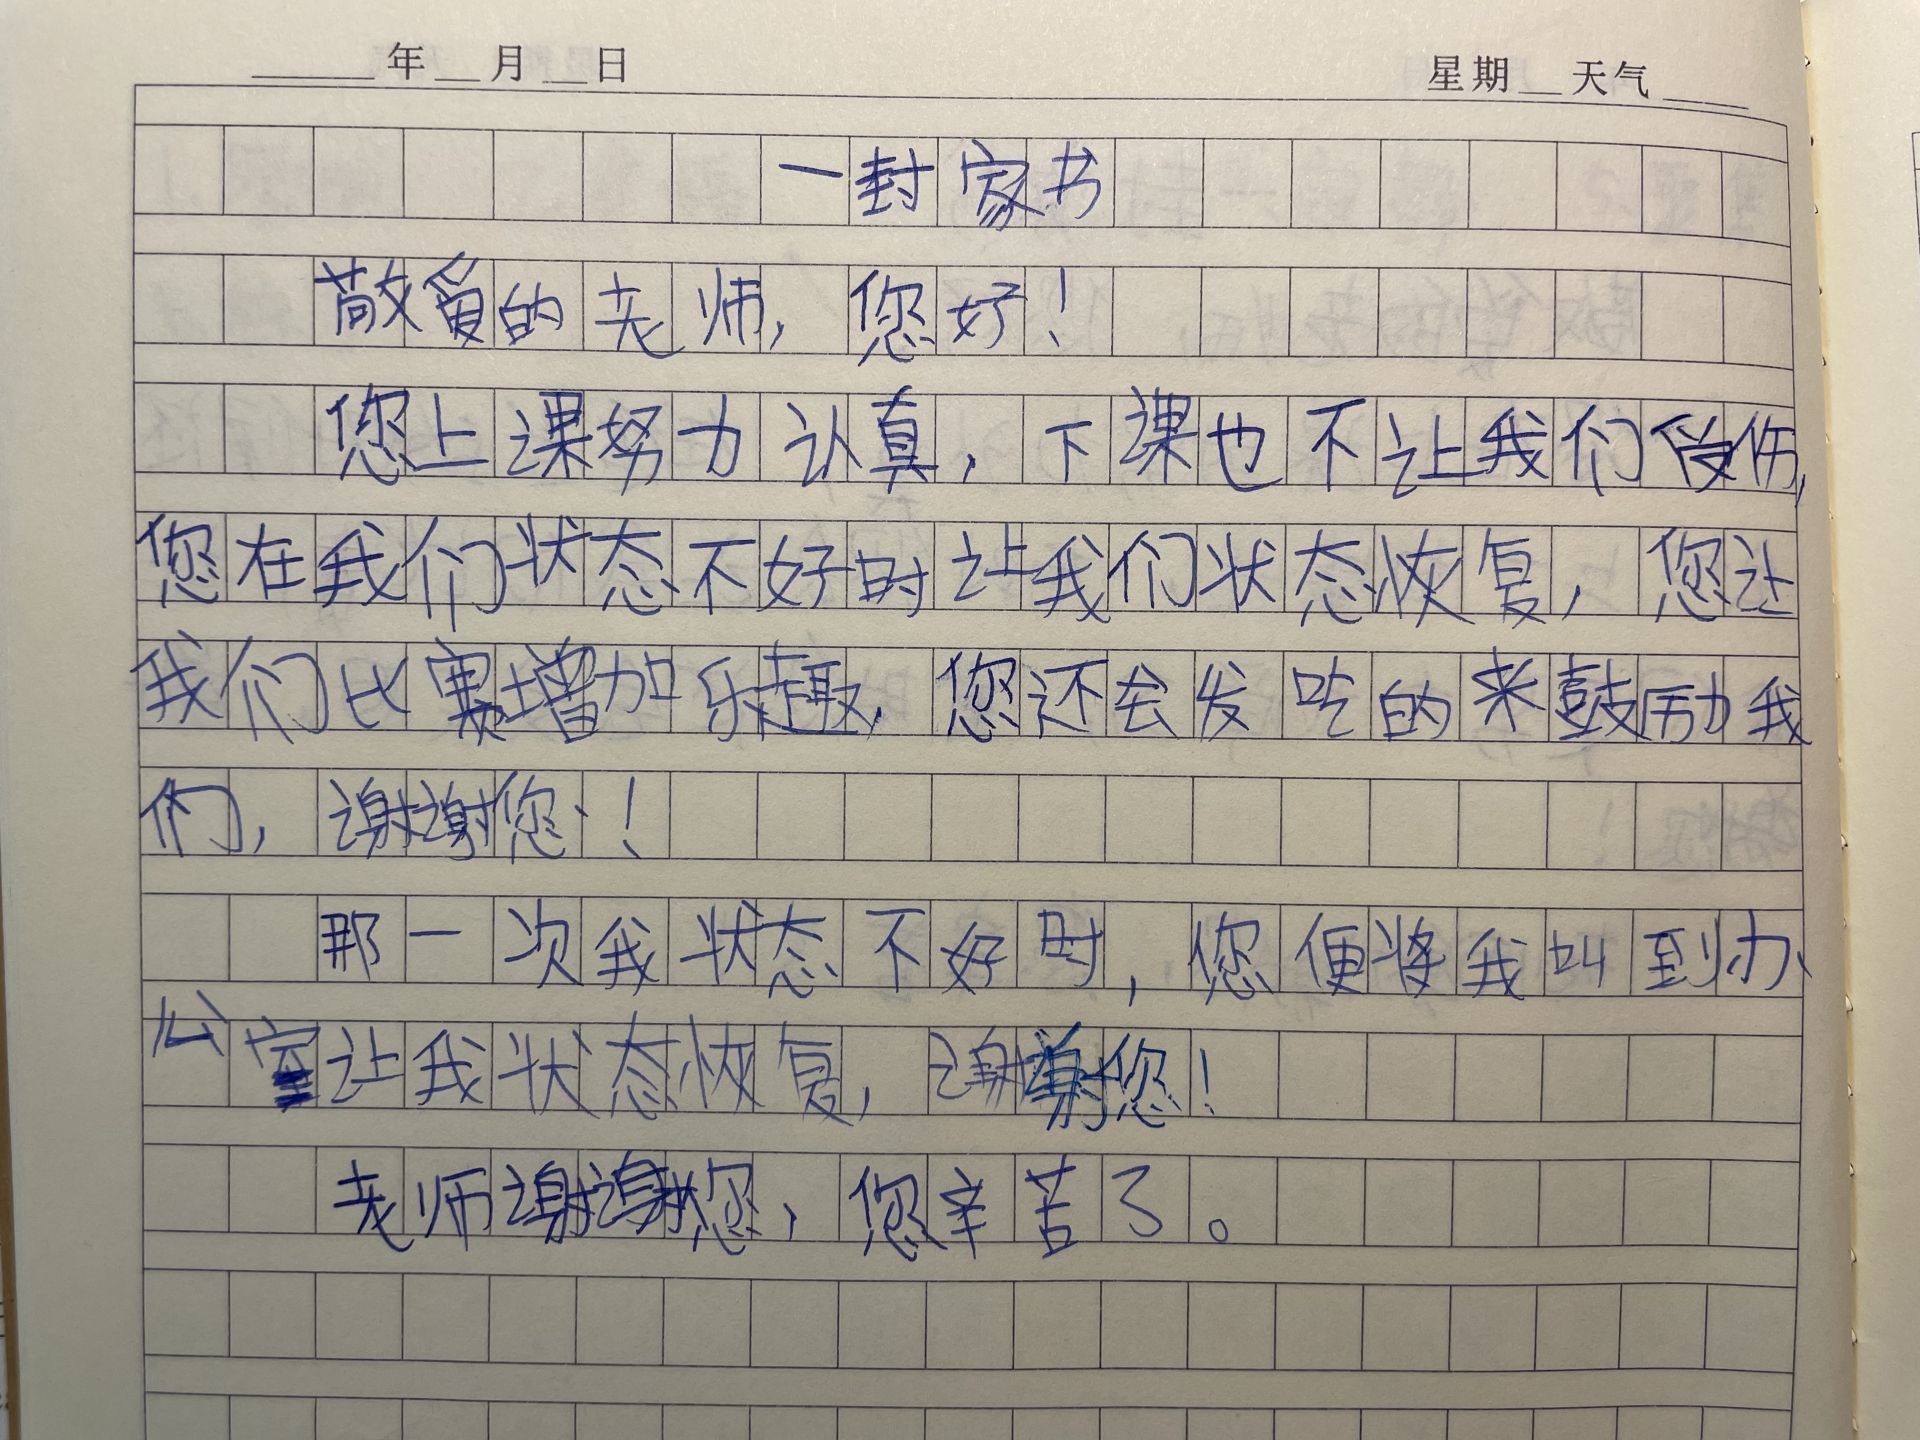 年 月 日 星期 天气
一封家书
敬爱的老师，您好！
您上课努力认真，下课也不让我们受伤，
您在我们状态不好时让我们状态恢复，您让
我们比赛增加乐趣，您还会发吃的来鼓励我
们，谢谢您！
那一次我状态不好时，您便将我叫到办
公室让我状态恢复，谢谢您！
老师谢谢您，您辛苦了。